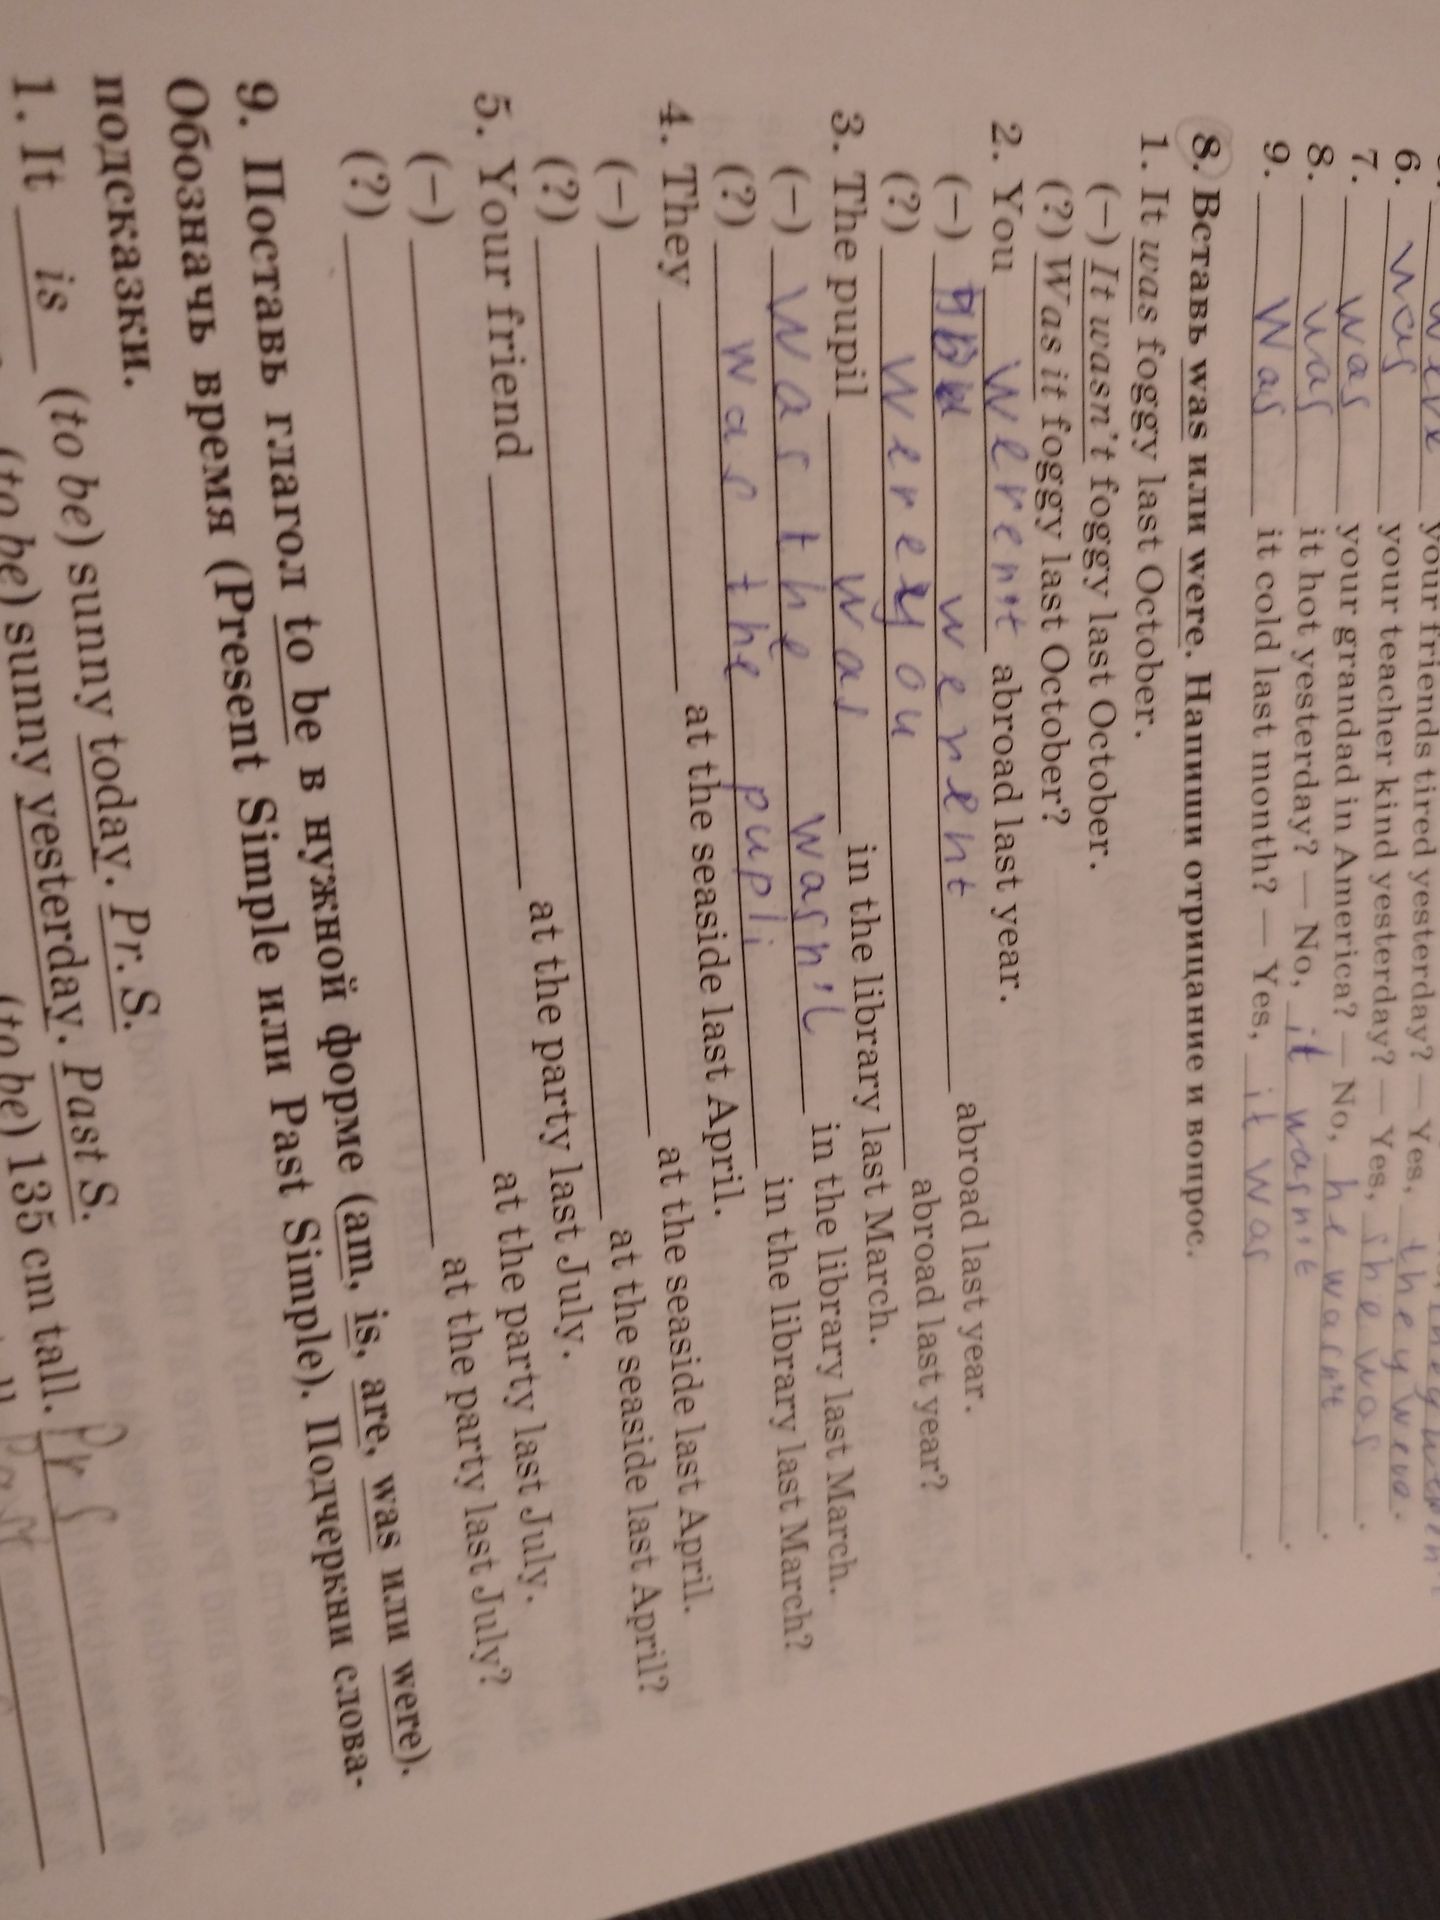 your friends tired yesterday? — Yes, they
6. was your teacher kind yesterday? — Yes, she was.
7. was your grandad in America? — No, he wasn't.
8. was it hot yesterday? — No, it wasn't.
9. was it cold last month? — Yes, it was.
8. Вставь was или were. Напиши отрицание и вопрос.
1. It was foggy last October.
(–) It wasn't foggy last October.
(?) Was it foggy last October?
2. You weren't abroad last year.
(–) werent abroad last year.
(?) were you abroad last year?
3. The pupil was in the library last March.
(–) was the wasn't in the library last March.
(?) was the pupli in the library last March?
4. They at the seaside last April.
(–) at the seaside last April.
(?) at the seaside last April?
5. Your friend at the party last July.
(–) at the party last July.
(?) at the party last July?
9. Поставь глагол to be в нужной форме (am, is, are, was или were).
Обозначь время (Present Simple или Past Simple). Подчеркни слова-
подсказки.
1. It is (to be) sunny today. Pr. S.
(to be) sunny yesterday. Past S.
(to be) 135 cm tall. Pr S